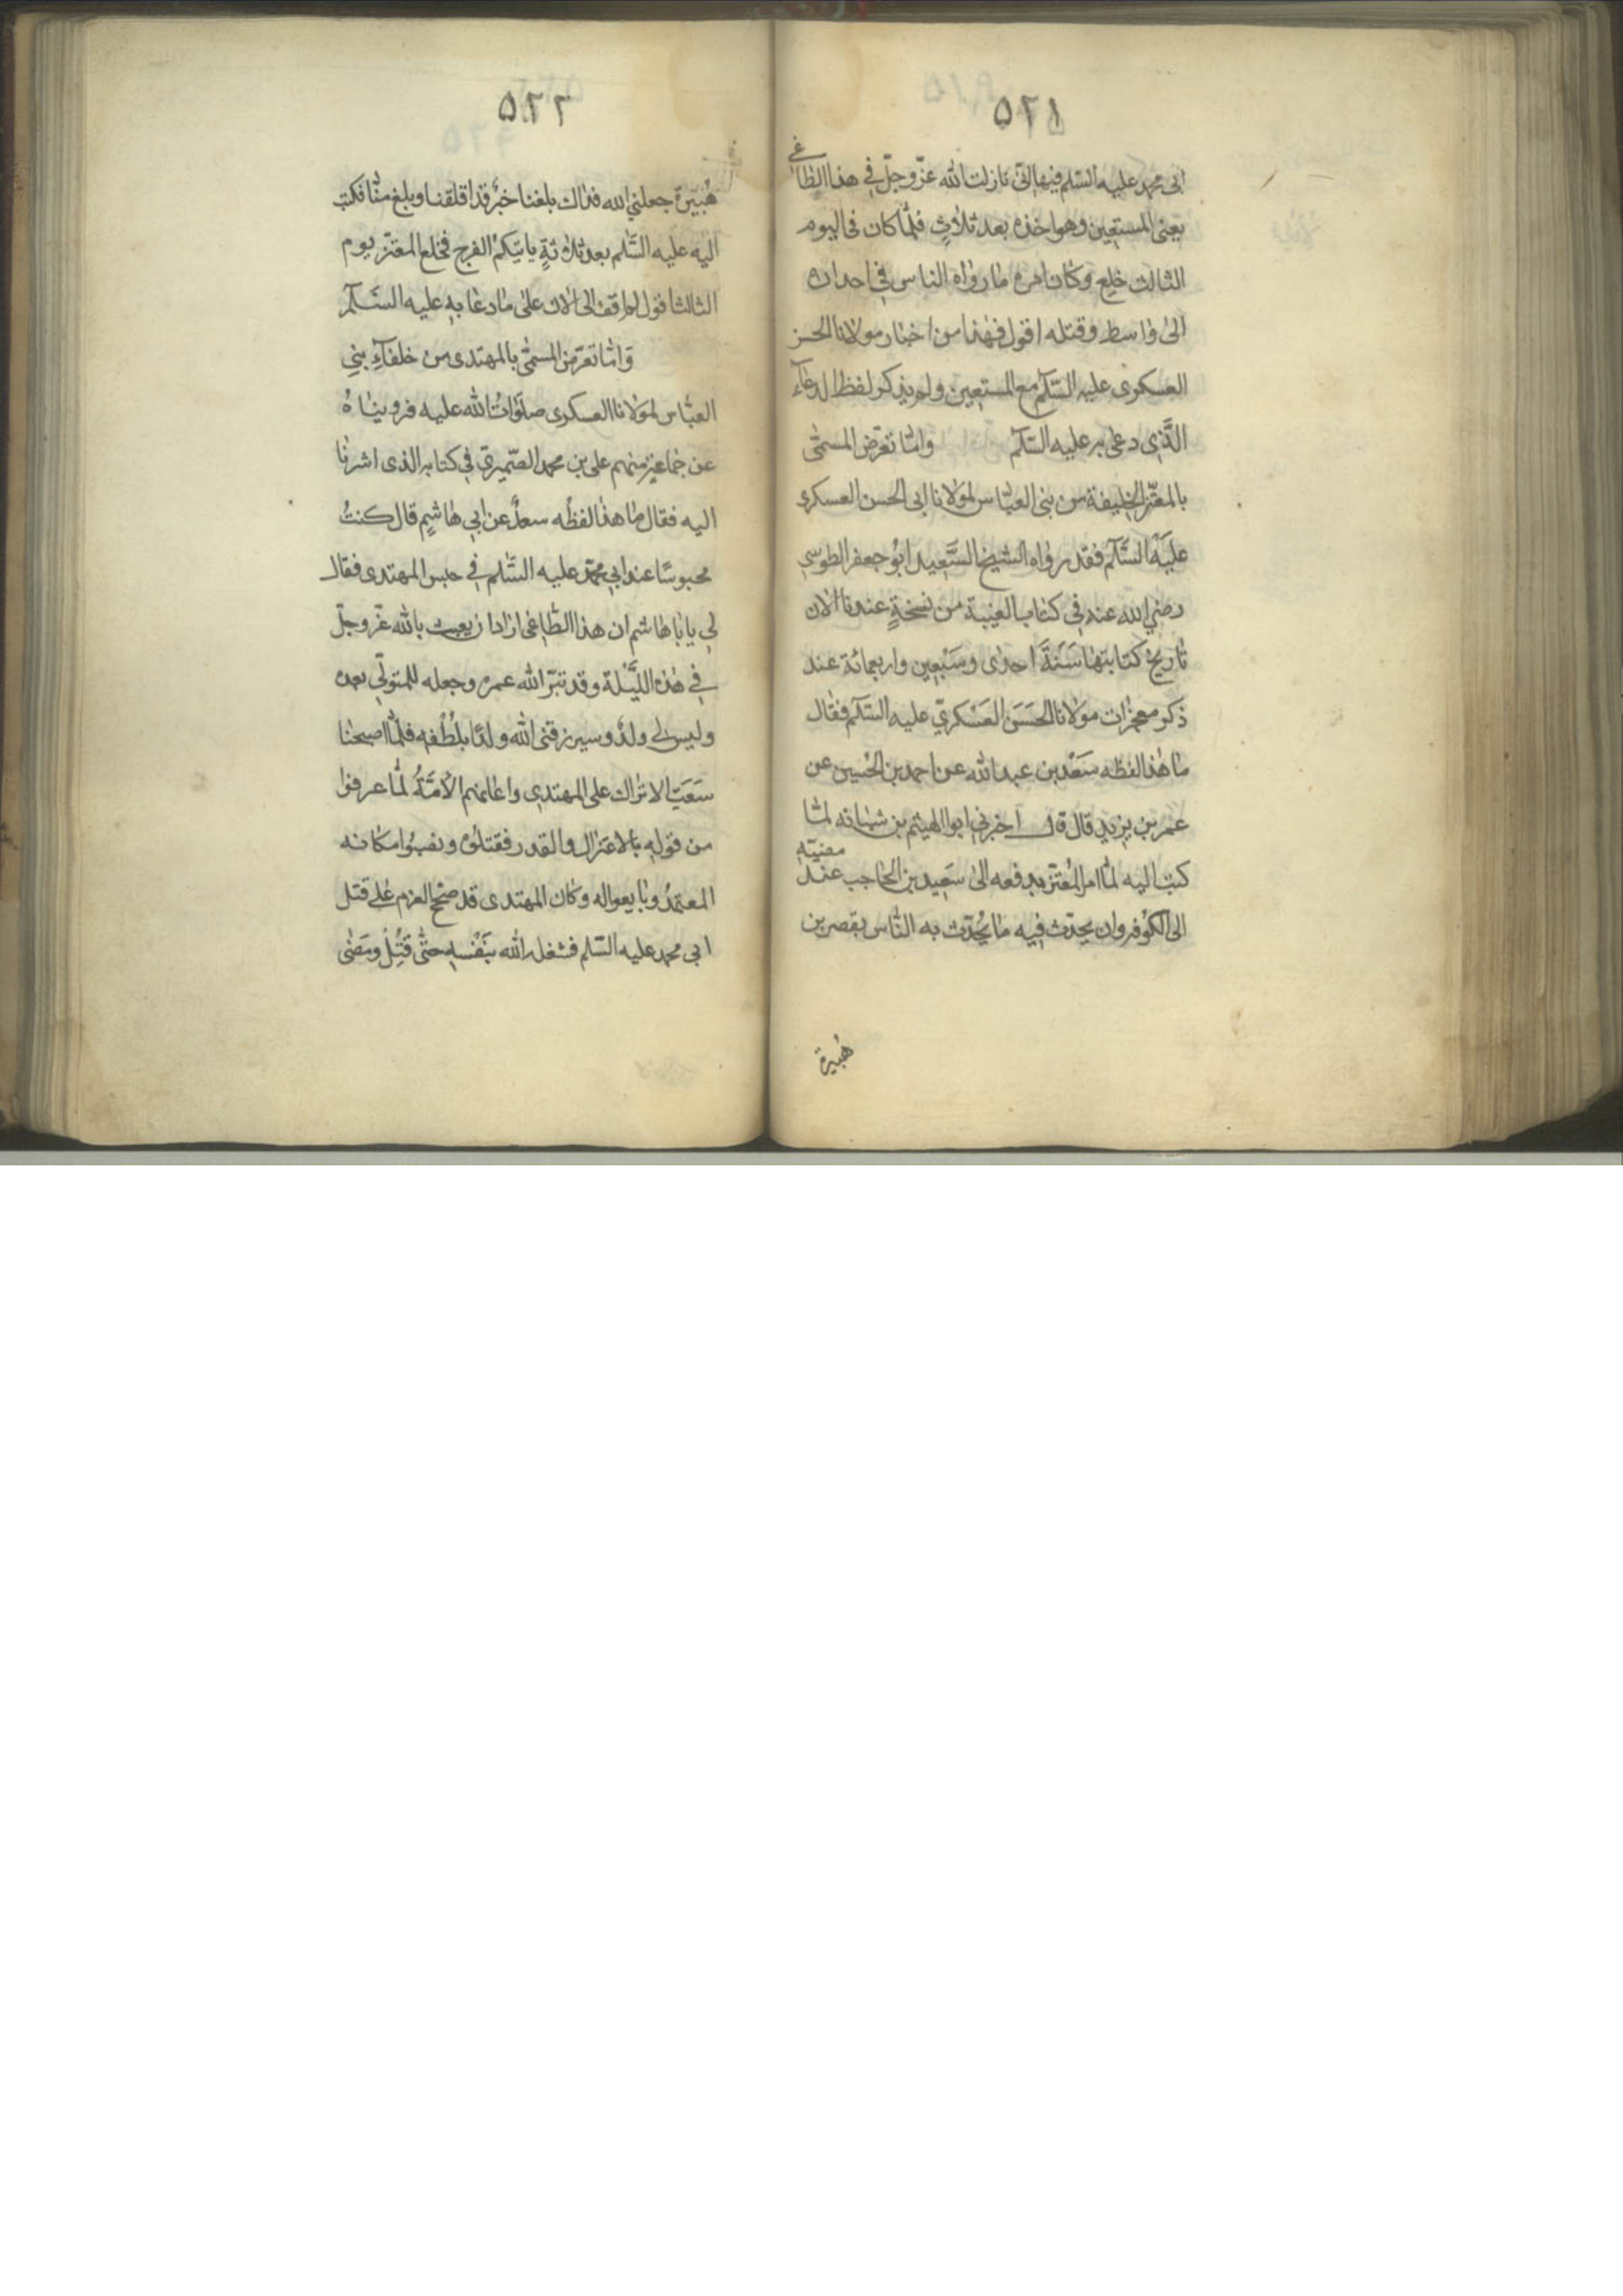 ٥٢١
ابى محمد عليه السّلم فيها انّى نازلت الله عزّ وجلّ فى هذا الطاغى
يعنى المستعين وهو اخذه بعد ثلاثٍ فلمّا كان فى اليوم
الثالث خلع وكان امره ما رواه الناس فى احداره
الى واسط وقتله اقول فهذا من اخبار مولانا الحسن
العسكرى عليه السّلام مع المستعين ولم يذكر لفظ الدعآء
الذى دعى به عليه السّلام وامّا تعرّض المسمّى
بالمعتز الخليفة من بنى العباس لمولانا ابى الحسن العسكرى
عليه السّلام فقد رواه الشيخ السّعيد ابو جعفر الطوسى
رضى الله عنه فى كتاب الغيبة من نسخةٍ عندنا الان
تاريخ كتابتها سنة احدى وسبعين واربعمائة عند
ذكر معجزات مولانا الحسن العسكرىّ عليه السّلام فقال
ما هذا لفظه سعد بن عبد الله عن احمد بن الحسين عن
عمر بن يزيد قال قال اخبرنى ابو الهيثم بن شبانه لمّا
كتب اليه لمّا امر المعتز بدفعه الى سعيد بن الحاجب عند مضيّه
الى الكوفه وان يحدّث فيه ما يُحدّث به النّاس بقصر بن
هبيرة
٥٢٢
هُبَيرة جعلنى الله فداك بلغنا خبرٌ قد اقلقنا وبلغ منّا فكتب
اليه عليه السّلم بعد ثلاثةٍ ياتيكم الفرج فخلع المعتز يوم
الثالث اقول لم اقف الى الان على ما دعا به عليه السّلام
وامّا تعرّض المسمّى بالمهتدى من خلفآء بنى
العبّاس لمولانا العسكرى صلوات الله عليه فرويناهُ
عن جماعةٍ منهم على بن محمد الصّيمرىّ فى كتابه الذى اشرنا
اليه فقال ما هذا لفظه سعدٌ عن ابى هاشمٍ قال كنتُ
محبوسًا عند ابى محمّد عليه السّلم فى حبس المهتدى فقال
لى يا با هاشم ان هذا الطّاغى اراد ان يعبث بالله عزّ وجلّ
فى هذه اللّيلة وقد تبّر الله عمره وجعله للمتولّى بعده
وليس لى ولدٌ وسيرزقنى الله ولدًا بلطفه فلمّا اصبحنا
سَعَتِ الاتراك على المهتدى واعانهم الامّةُ لمّا عرفوا
من قوله بالاعتزال والقدر فقتلوه ونصبوا مكانه
المعتمدُ وبايعوا له وكان المهتدى قد صحّح العزم على قتل
ابى محمد عليه السّلم فشغله الله بنفسه حتّى قُتِل ومضى